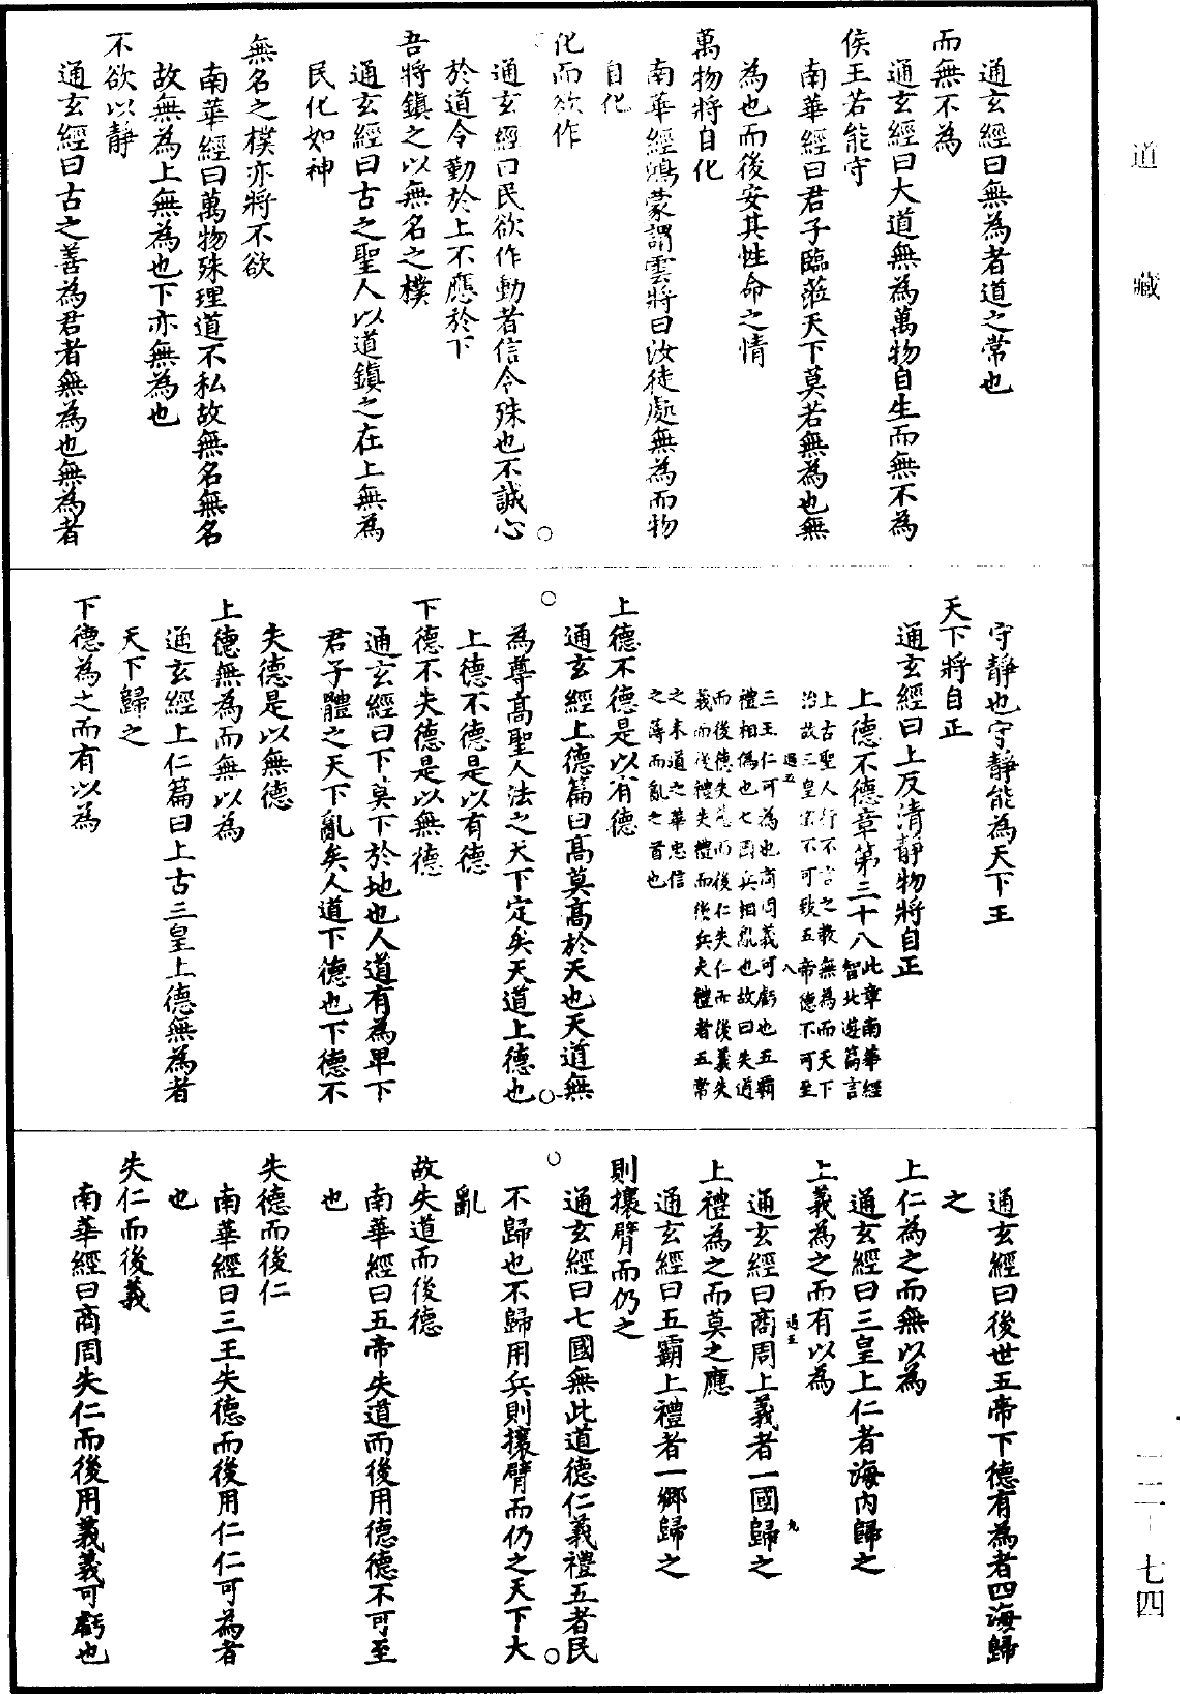 道藏
通玄經曰無為者道之常也
而無不為
通玄經曰大道無為萬物自生而無不為
侯王若能守
南華經曰君子臨莅天下莫若無為也無
為也而後安其性命之情
萬物將自化
南華經鴻蒙謂雲將曰汝徒處無為而物
自化
化而欲作
通玄經曰民欲作動者信令殊也不誠心
於道令勤於上不應於下
吾將鎮之以無名之樸
通玄經曰古之聖人以道鎮之在上無為
民化如神
無名之樸亦將不欲
南華經曰萬物殊理道不私故無名無名
故無為上無為也下亦無為也
不欲以靜
通玄經曰古之善為君者無為也無為者
守靜也守靜能為天下王
天下將自正
通玄經曰上反清靜物將自正
上德不德章第三十八
此章南華經
智北遊篇言
上古聖人行不言之教無為而天下
治故三皇宗不可致五帝德不可至
過五
八
三王仁可為也商周義可虧也五霸
禮相偽也七國兵相亂也故曰失道
而後德失德而後仁失仁而後義失
義而後禮失禮而後兵夫禮者五常
之末道之華忠信
之薄而亂之首也
上德不德是以有德
通玄經上德篇曰高莫高於天也天道無
為尊高聖人法之天下定矣天道上德也
上德不德是以有德
下德不失德是以無德
通玄經曰下莫下於地也人道有為卑下
君子體之天下亂矣人道下德也下德不
失德是以無德
上德無為而無以為
通玄經上仁篇曰上古三皇上德無為者
天下歸之
下德為之而有以為
通玄經曰後世五帝下德有為者四海歸
之
上仁為之而無以為
通玄經曰三皇上仁者海內歸之
上義為之而有以為
過五
九
通玄經曰商周上義者一國歸之
上禮為之而莫之應
通玄經曰五霸上禮者一鄉歸之
則攘臂而仍之
通玄經曰七國無此道德仁義禮五者民
不歸也不歸用兵則攘臂而仍之天下大
亂
故失道而後德
南華經曰五帝失道而後用德德不可至
也
失德而後仁
南華經曰三王失德而後用仁仁可為者
也
失仁而後義
南華經曰商周失仁而後用義義可虧也
一二-七四